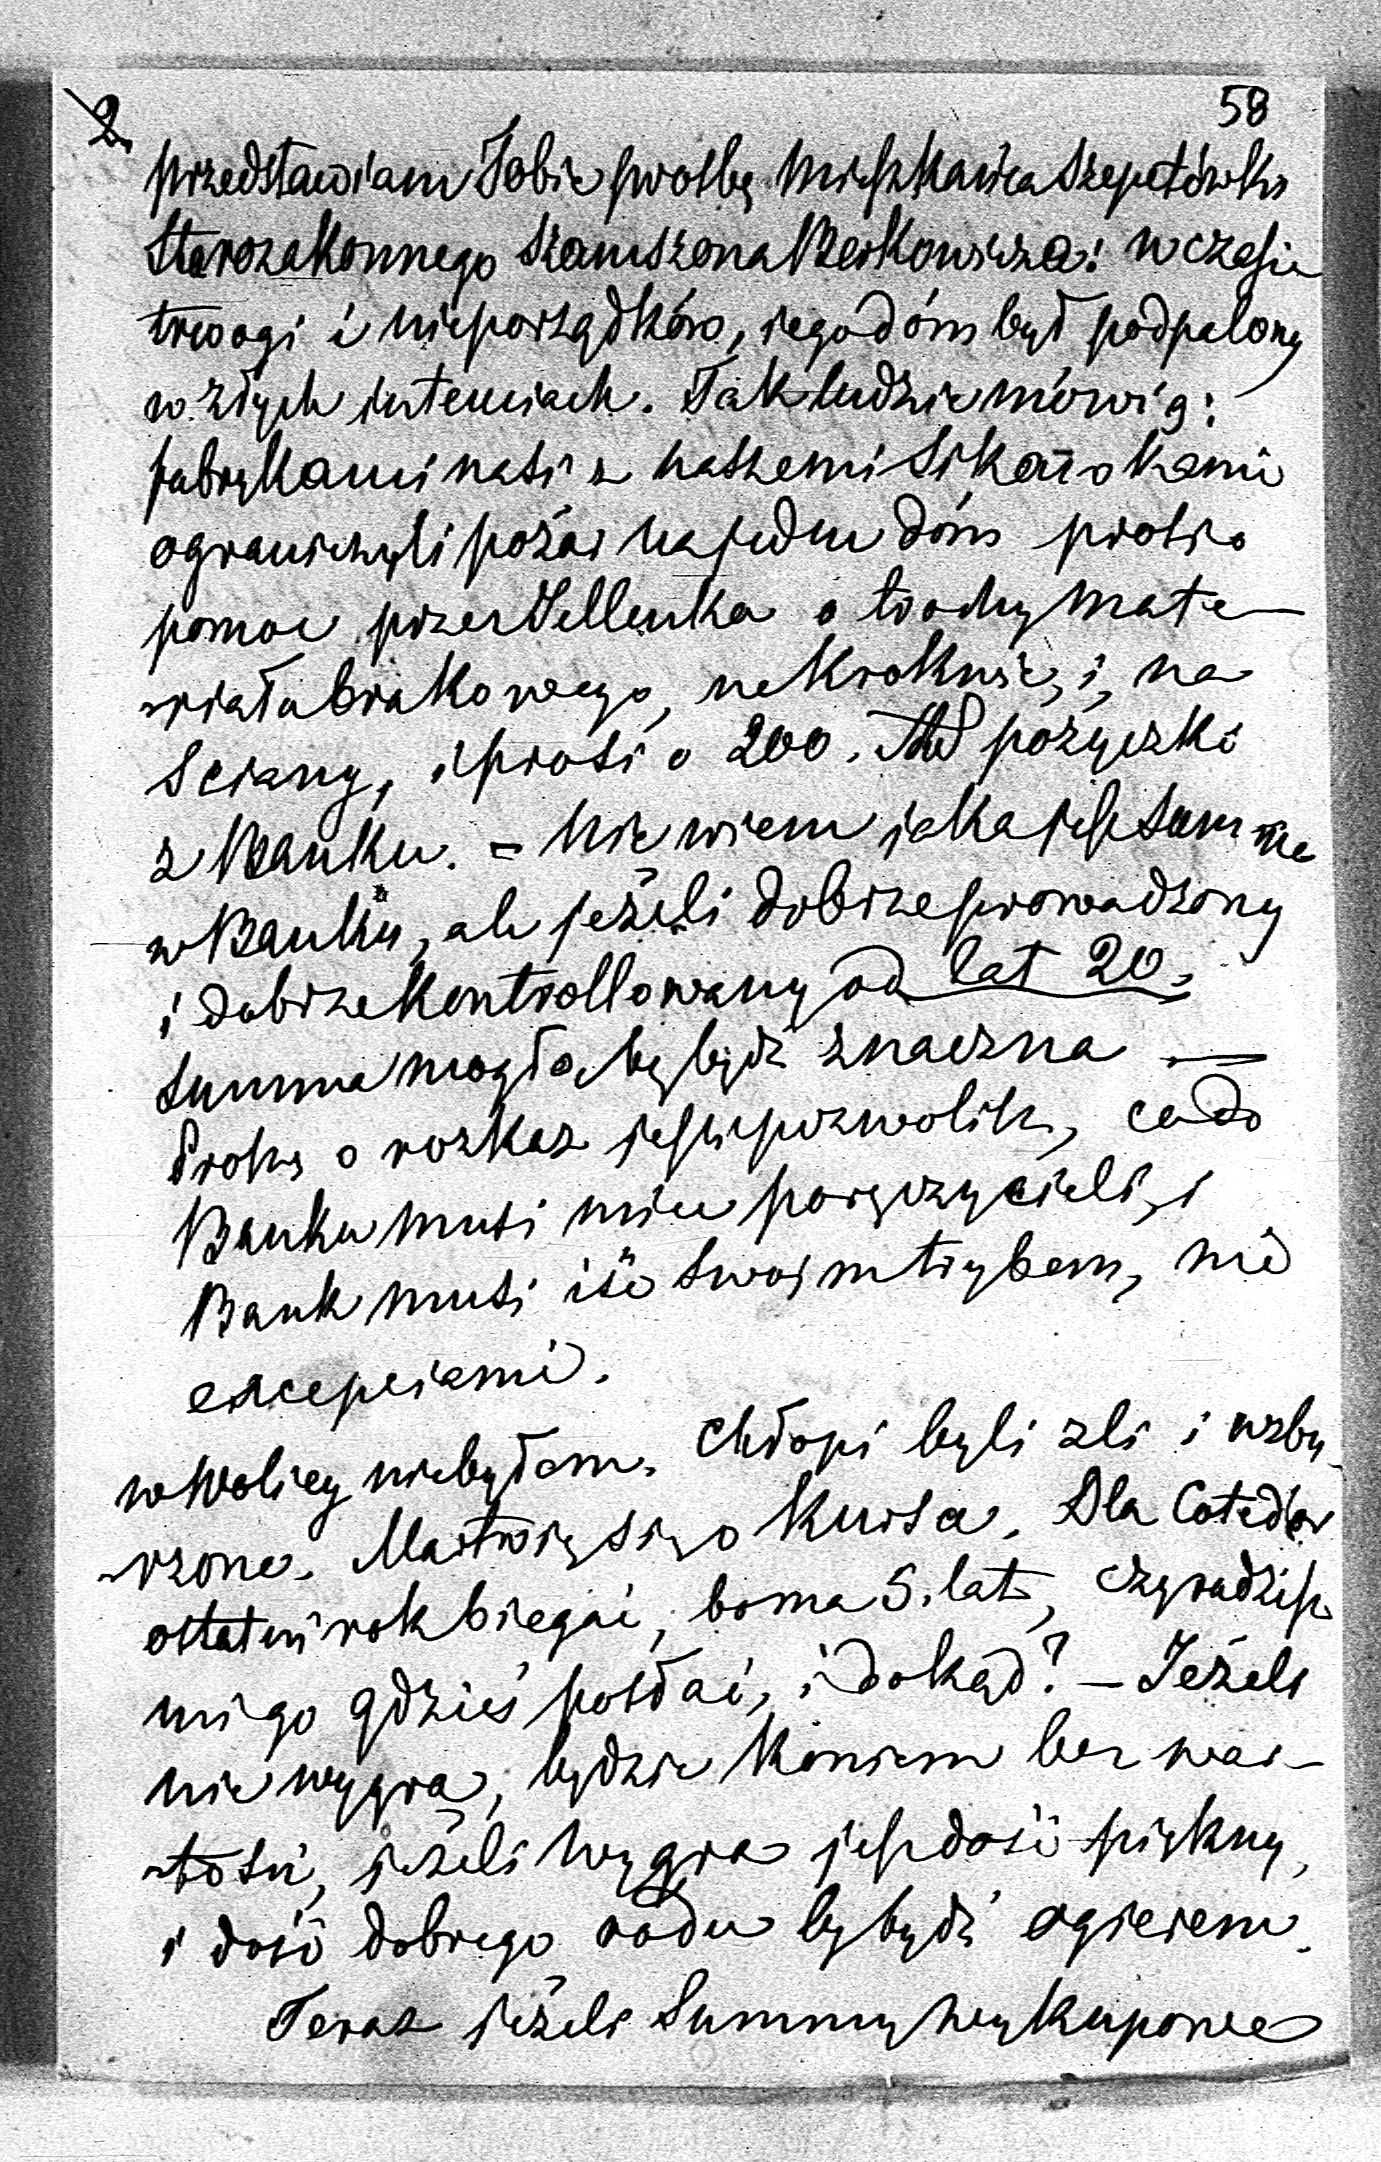 2.
58
przedstawiam Tobie prośbę Mieszkańca Szepetówki
Starozakonnego Szamszona Berkowicza: w czasie
trwogi i nieporządków, iego dóm był podpalony
w złych intenciach. Tak ludzie mówią:
fabrykanci nasi z naszemi Sikawkami
ograniczyli pożar na jeden dóm prosi o
pomoc przez Jellenka o trochy mate-
-riału brakowego, na Krokwie, i, na
Sciany, i prosi o 200. pożyczki
z Banku. - Nie wiem jaka jest Summa
w Banku, ale jeżeli dobrze prowadzony
i dobrze Kontrollowany od lat 20,
Summa mogła by bydz znaczna —
Proszę o rozkaz jeśli pozwolisz, co do
Banku musi miec poręczycieli, i
Bank musi iść swoim trybem, nie
excepciami.
w Wolicy nie byłam. Chłopi byli zli i wzbu-
-rzone. Martwię się o Kursa. Dla
ostatni rok biegać, bo ma 5. lat, czy radzisz
mi go gdzieś posłać, i dokąd? - Jeżeli
nie wygra, będzie Koniem bez war-
-tości, jeżeli wygra jest dość piękny,
i dość dobrego rodu by bydź ogierem.
Teraz jeżeli Summy wykupowe